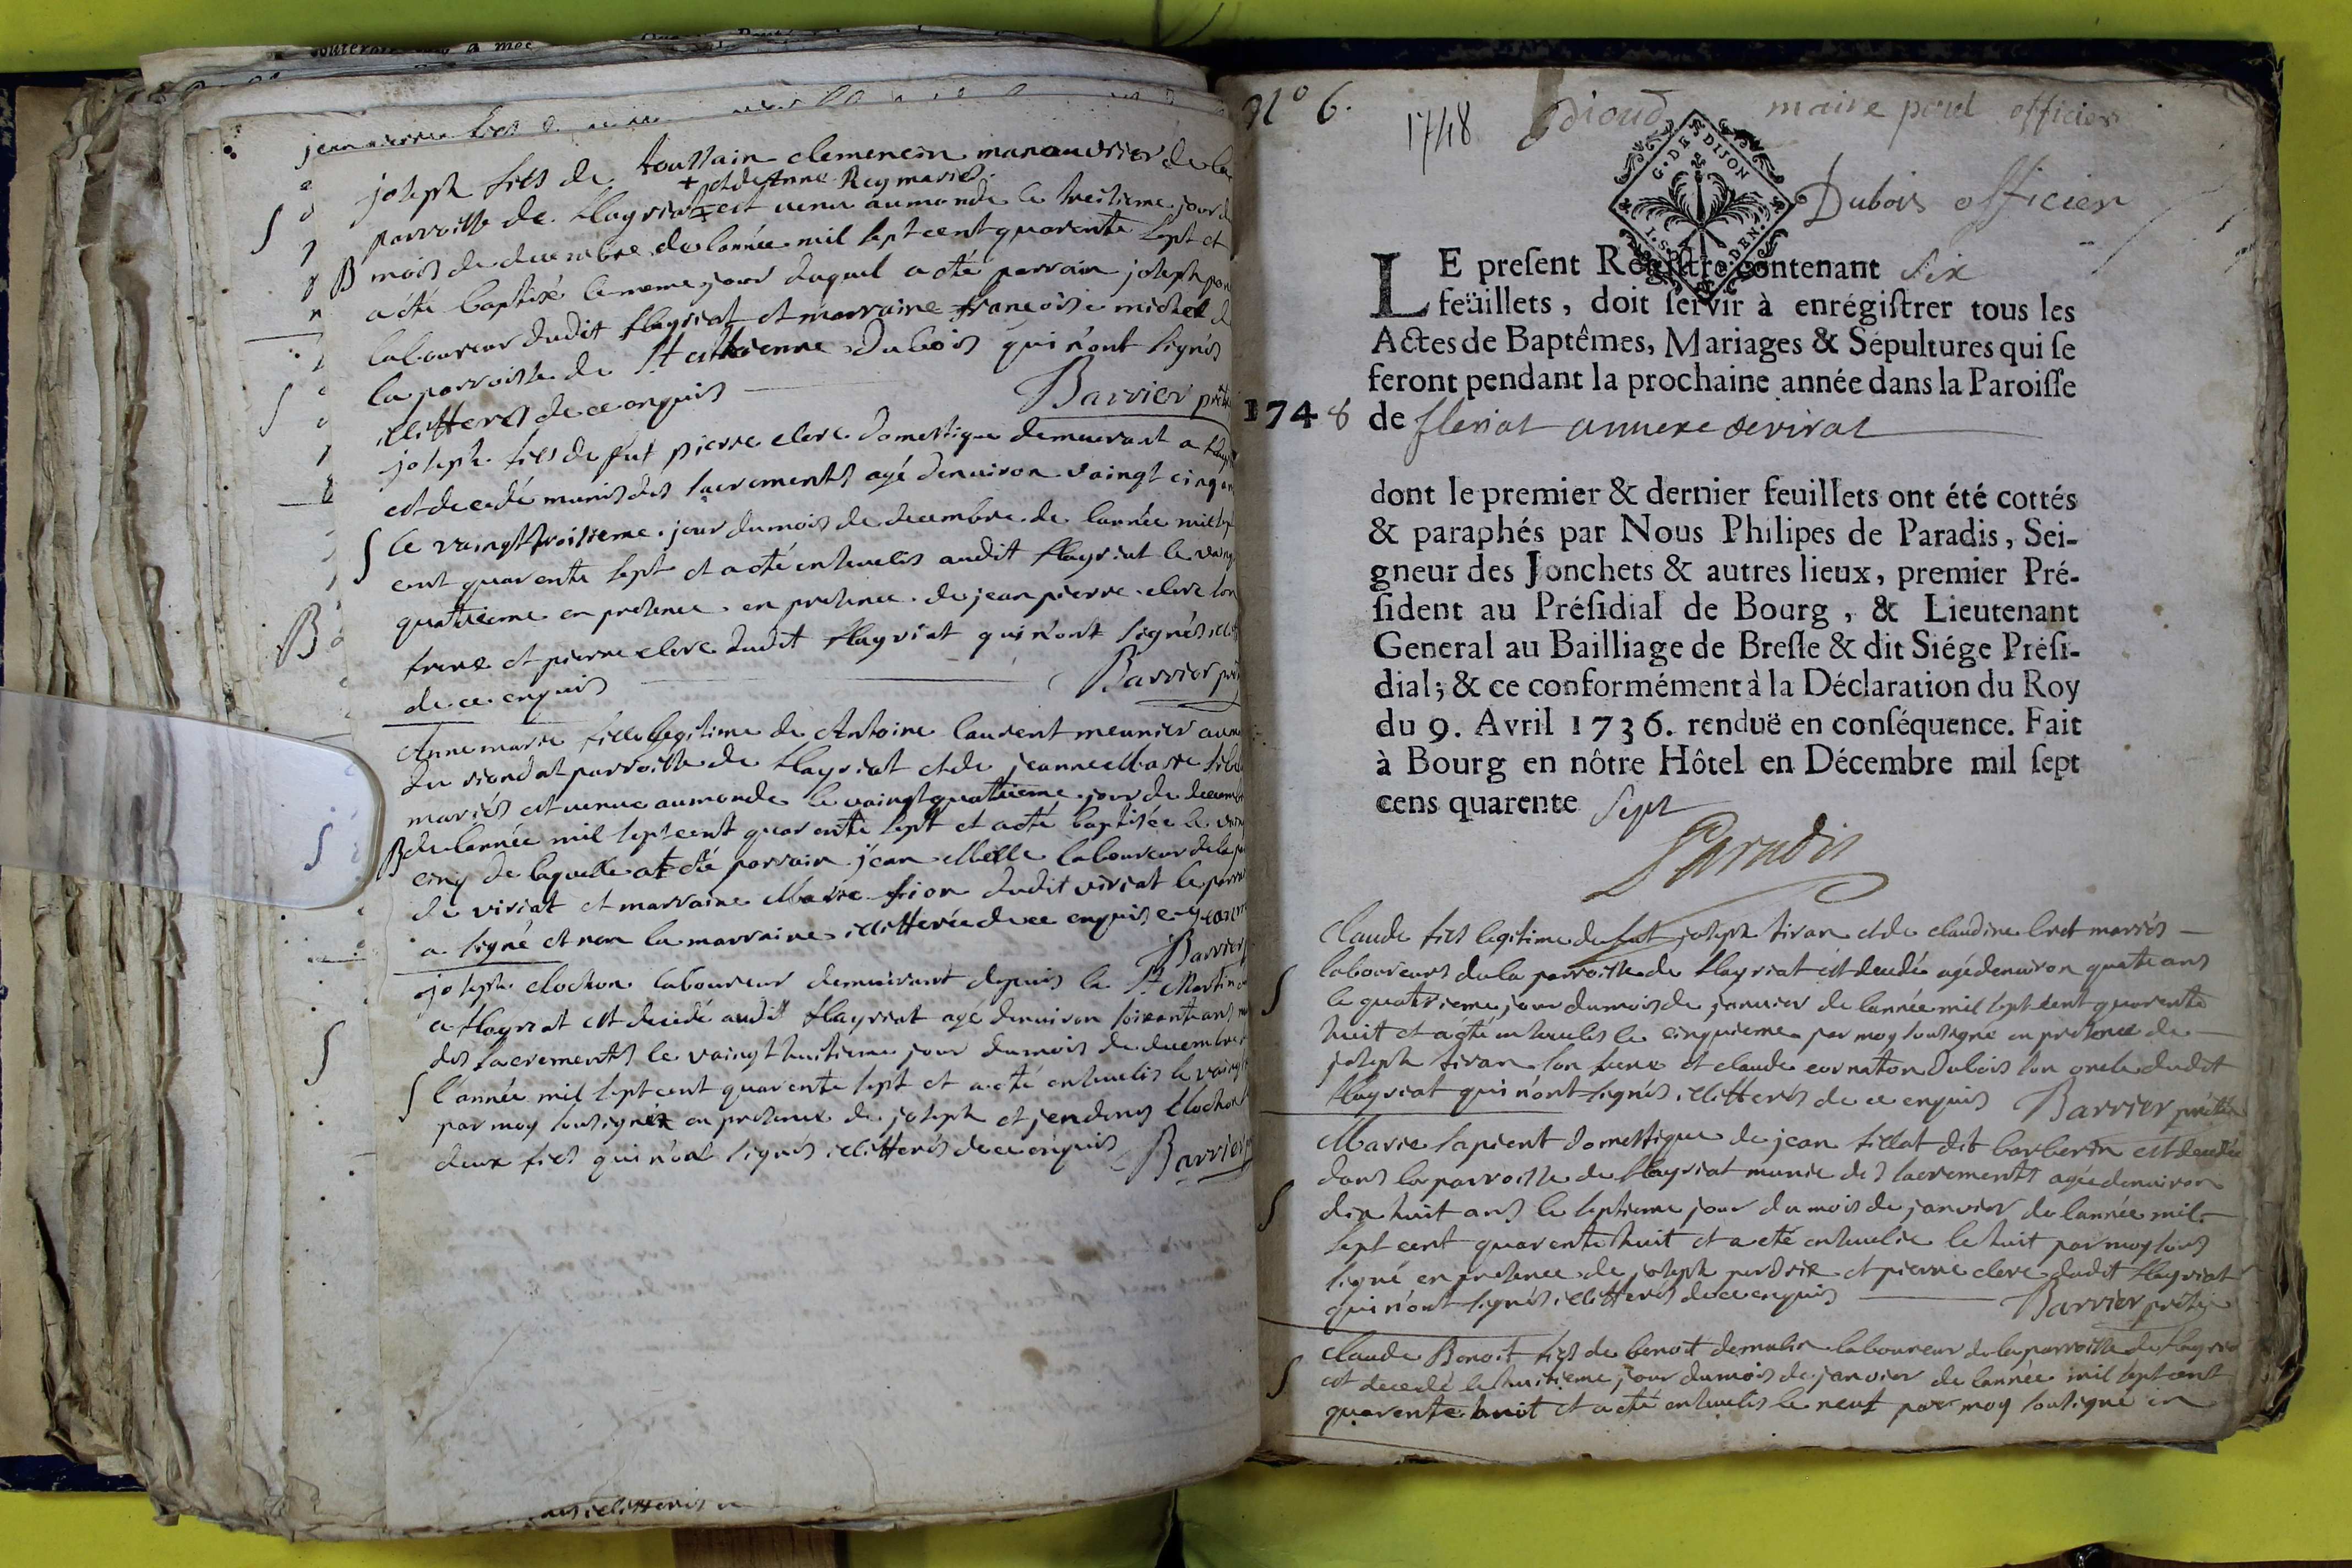 joseph fils de toussain clemencin manouvrier de la
+ et de Anne Rey mariés.
parroisse de flayriat + est venu au monde le treisieme jour d
mois de decembre de lannée mil sept cent quarente sept et
B
a été baptisé le meme jour duquel a été parrain joseph
laboureur dudit flayriat et marraine françoise michel d
la parroisse de St eithienne Dubois qui n'ont signés
illitterés de ce enquis
Barrier prêtre
joseph fils de fut pierre clerc domestique demeurant a
est decedé munis des sacrements agé denviron vaingt cinq ans
S le vaingt troisieme jour du mois de decembre de lannée mil sept
cent quarente sept et a été enseuelis audit flayriat le vaingt
quatrieme en presence en presence de jean pierre clerc son
frere et pierre clerc dudit flayriat qui n'ont signés
de ce enquis
Barrier
Anne marie fille legitime de Antoine laurent meunier au
du riondat parroisse de flayriat et de jeanne Marie
mariés est venue au monde le vaingt quatrieme jour de decembre
B de lannée mil sept cent quarente sept et a été baptisée le
cinq de laquelle at été parrain jean Melle laboureur de la
de viriat et marraine Marie fion dudit viriat le parrain
a signé et non la marraine illitterée de ce enquise
Barrier
joseph clochon laboureur demeurant depuis la St Martin
a flayriat est decedé audit flayriat agé denviron soixante ans
des sacrements le vaingt huitieme jour du mois de decembre
S l'année mil sept cent quarente sept et a été enseuelis le vaingt
par moy sousigné en presence de joseph et jen denis clochon
deux fils qui n'ont signés illitterés de ce enquis
Barrier
N° 6.
1748
maire
officier
G. DE DIJON
Dubois officier
LE present Registre contenant six
feüillets, doit servir à enrégistrer tous les
Actes de Baptêmes, Mariages & Sépultures qui se
feront pendant la prochaine année dans la Paroisse
1748 de fleriat annexe de viriat
dont le premier & dernier feuillets ont été cottés
& paraphés par Nous Philipes de Paradis, Sei-
gneur des Jonchets & autres lieux, premier Pré-
sident au Présidial de Bourg, & Lieutenant
General au Bailliage de Bresse & dit Siége Présі-
dial; & ce conformément à la Déclaration du Roy
du 9. Avril 1736. renduë en conséquence. Fait
à Bourg en nôtre Hôtel en Décembre mil sept
cens quarente sept
Paradis
claude fils legitime de fut joseph tiran et de claudine bret mariés
laboureurs de la parroisse de flayriat est decedé agé denviron quatre ans
S le quatrieme jour du mois de janvier de lannée mil sept cent quarente
huit et a été enseuelis le cinquieme par moy sousigné en presence de
joseph tiran son frere et claude cornaton Dubois son oncle dudit
flayriat qui n'ont signés illitterés de ce enquis Barrier prêtre
Marie sapient domestique de jean fillat dit barberin est decedée
dans la parroisse de flayriat munie des sacrements agée denviron
S dix huit ans le septieme jour du mois de janvier de lannée mil
sept cent quarente huit et a été enseuelie le huit par moy sous
signé en presence de joseph perdrix et pierre clerc dudit flayriat
qui n'ont signés illitterés de ce enquis Barrier prêtre
claude Benoit fils de benoit laboureur de la parroisse de flayriat
S est decedé le huitieme jour du mois de janvier de lannée mil sept cent
quarente huit et a été enseuelis le neuf par moy sousigné en